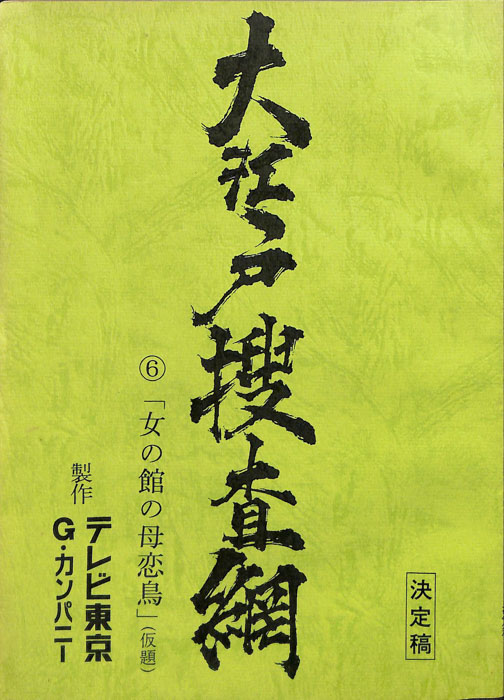 大江戸捜査網
⑥「女の館の母恋鳥」(仮題)
製作
テレビ東京
G・カンパニー
決定稿